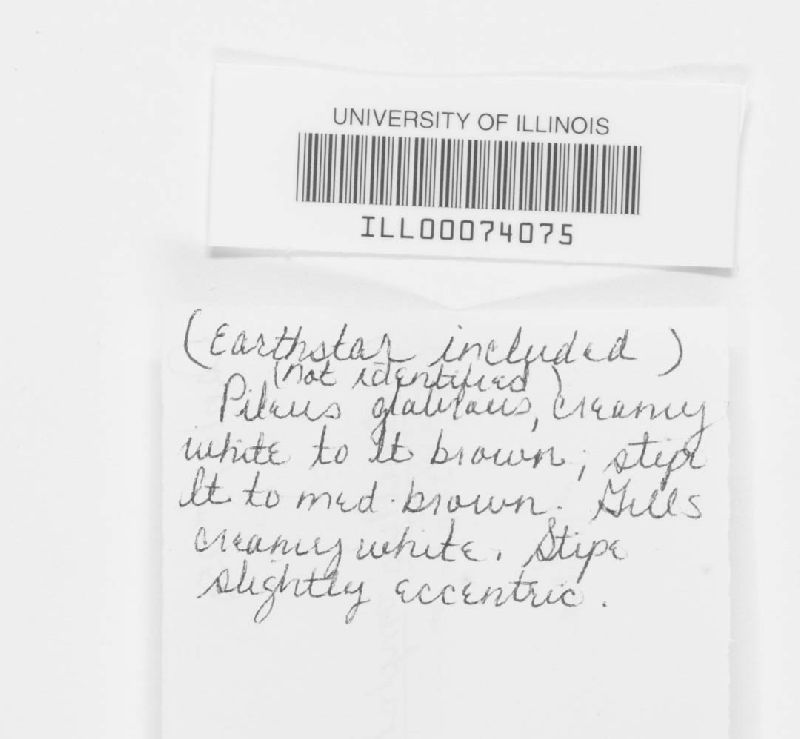 UNIVERSITY OF ILLINOIS
ILL00074075
(Earthstar included)
(not identified)
Pileus glabrous, creamy
white to lt brown; stipe
lt to med. brown. Gills
creamy white. Stipe
slightly eccentric.